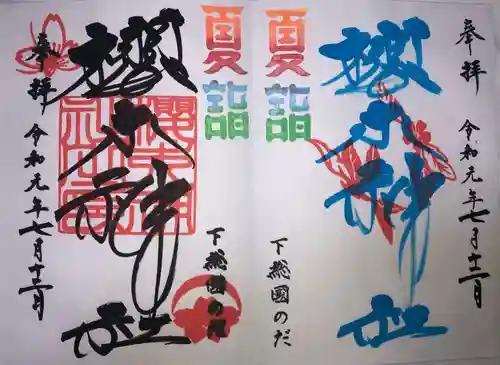 奉拝　令和元年七月十二日
櫻木神社
夏詣
下総國のだ
夏詣
下総國のだ
櫻木神社
奉拝　令和元年七月十二日